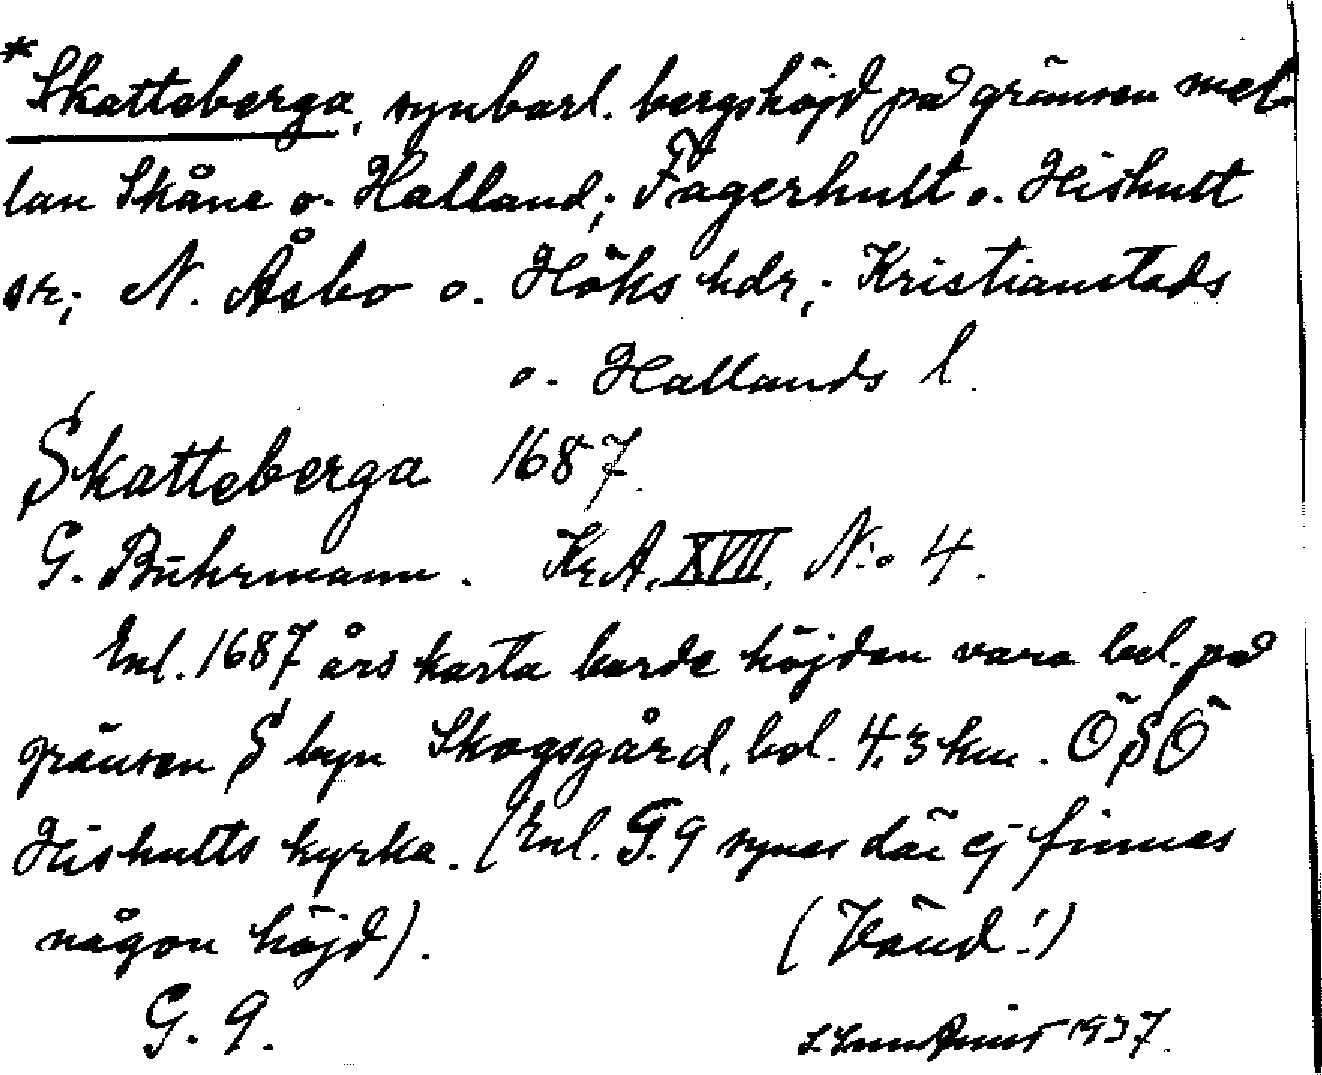 *Skatteberga, synbarl. bergshöjd på gränsen mel-
lan Skåne o. Halland; Fagerhult o. Hishult
sr; N. Åsbo o. Höks hdr; Kristianstads
o. Hallands l.
Skatteberga 1687.
G. Buhrmann. KrA, XVII, N:o 4.
Enl. 1687 års karta borde höjden vara bel. på
gränsen S byn Skogsgård, bel. 4,3 km. ÖSÖ
Hishults kyrka. (Enl. G. 9 synes där ej finnas
någon höjd). (Vänd!)
G. 9. 1937.